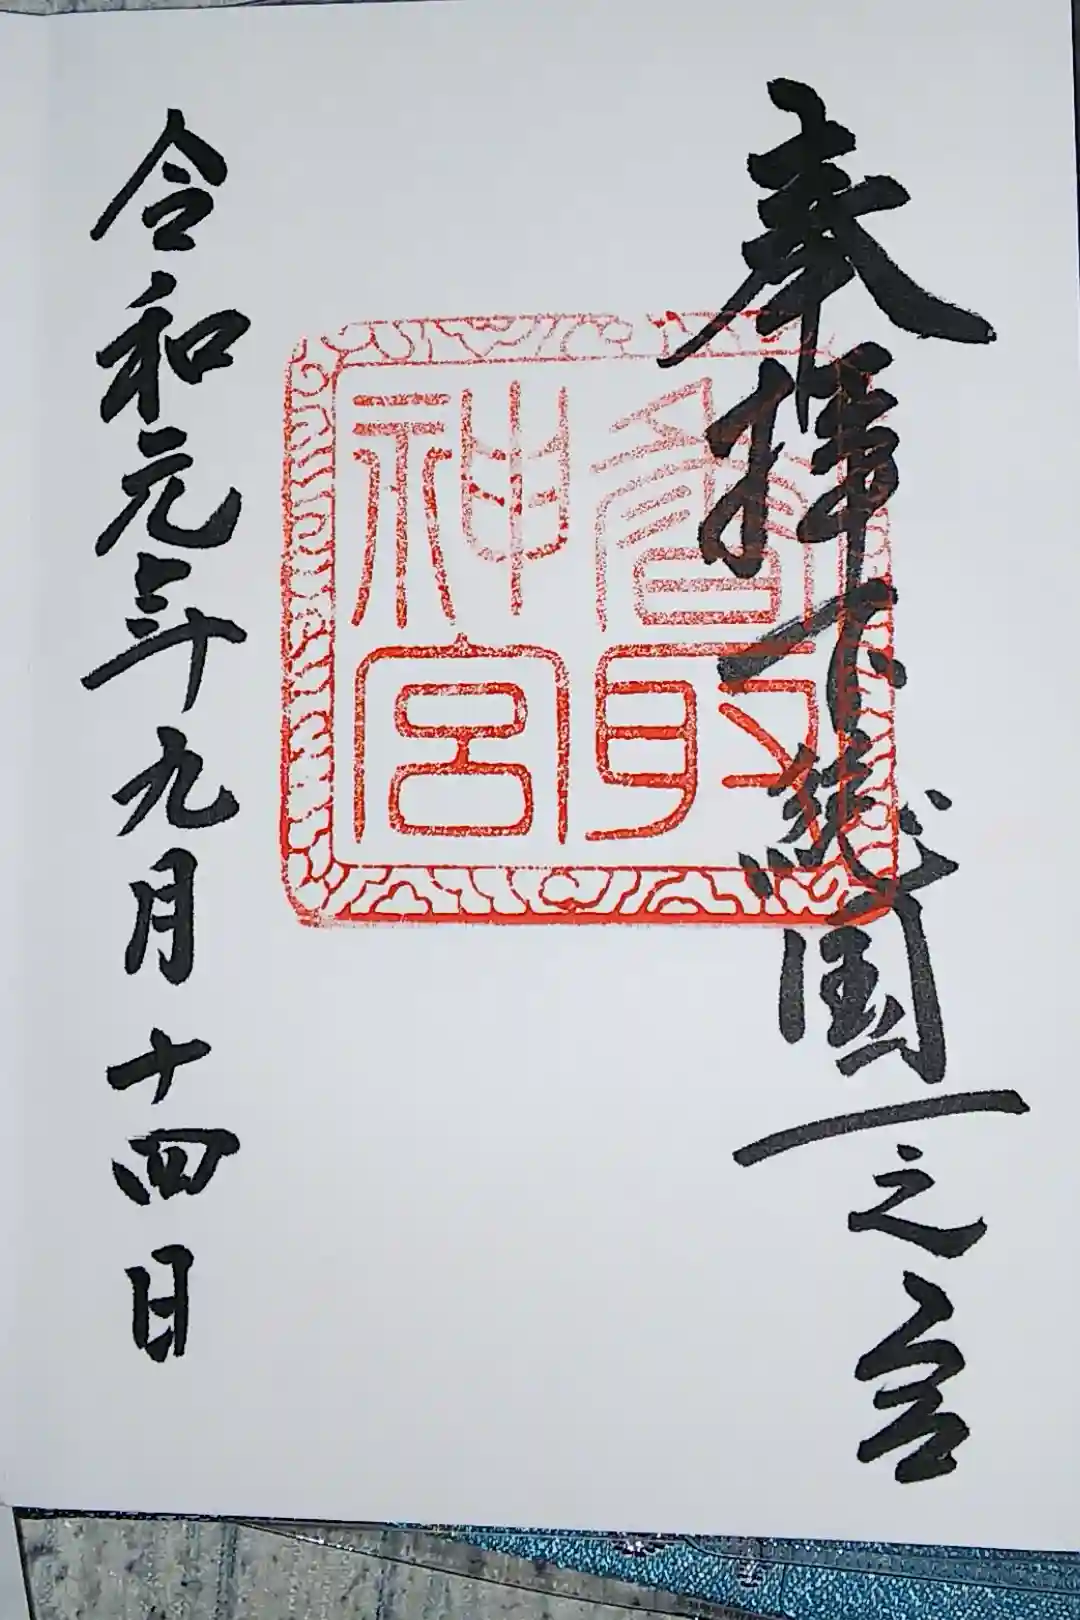 奉拝下総国一之宮
香取
神宮
令和元年九月十四日